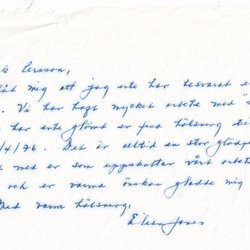 Persson,
att jag inte har besvarat
. Vi har haft mycket arbete med
har inte glömt er fina hälsning
/4/76. Det är alltid en stor glädje
med er som uppskattar vårt arbete
och er varma önskan gladde mig
Med varm hälsning,
Eileen Jones